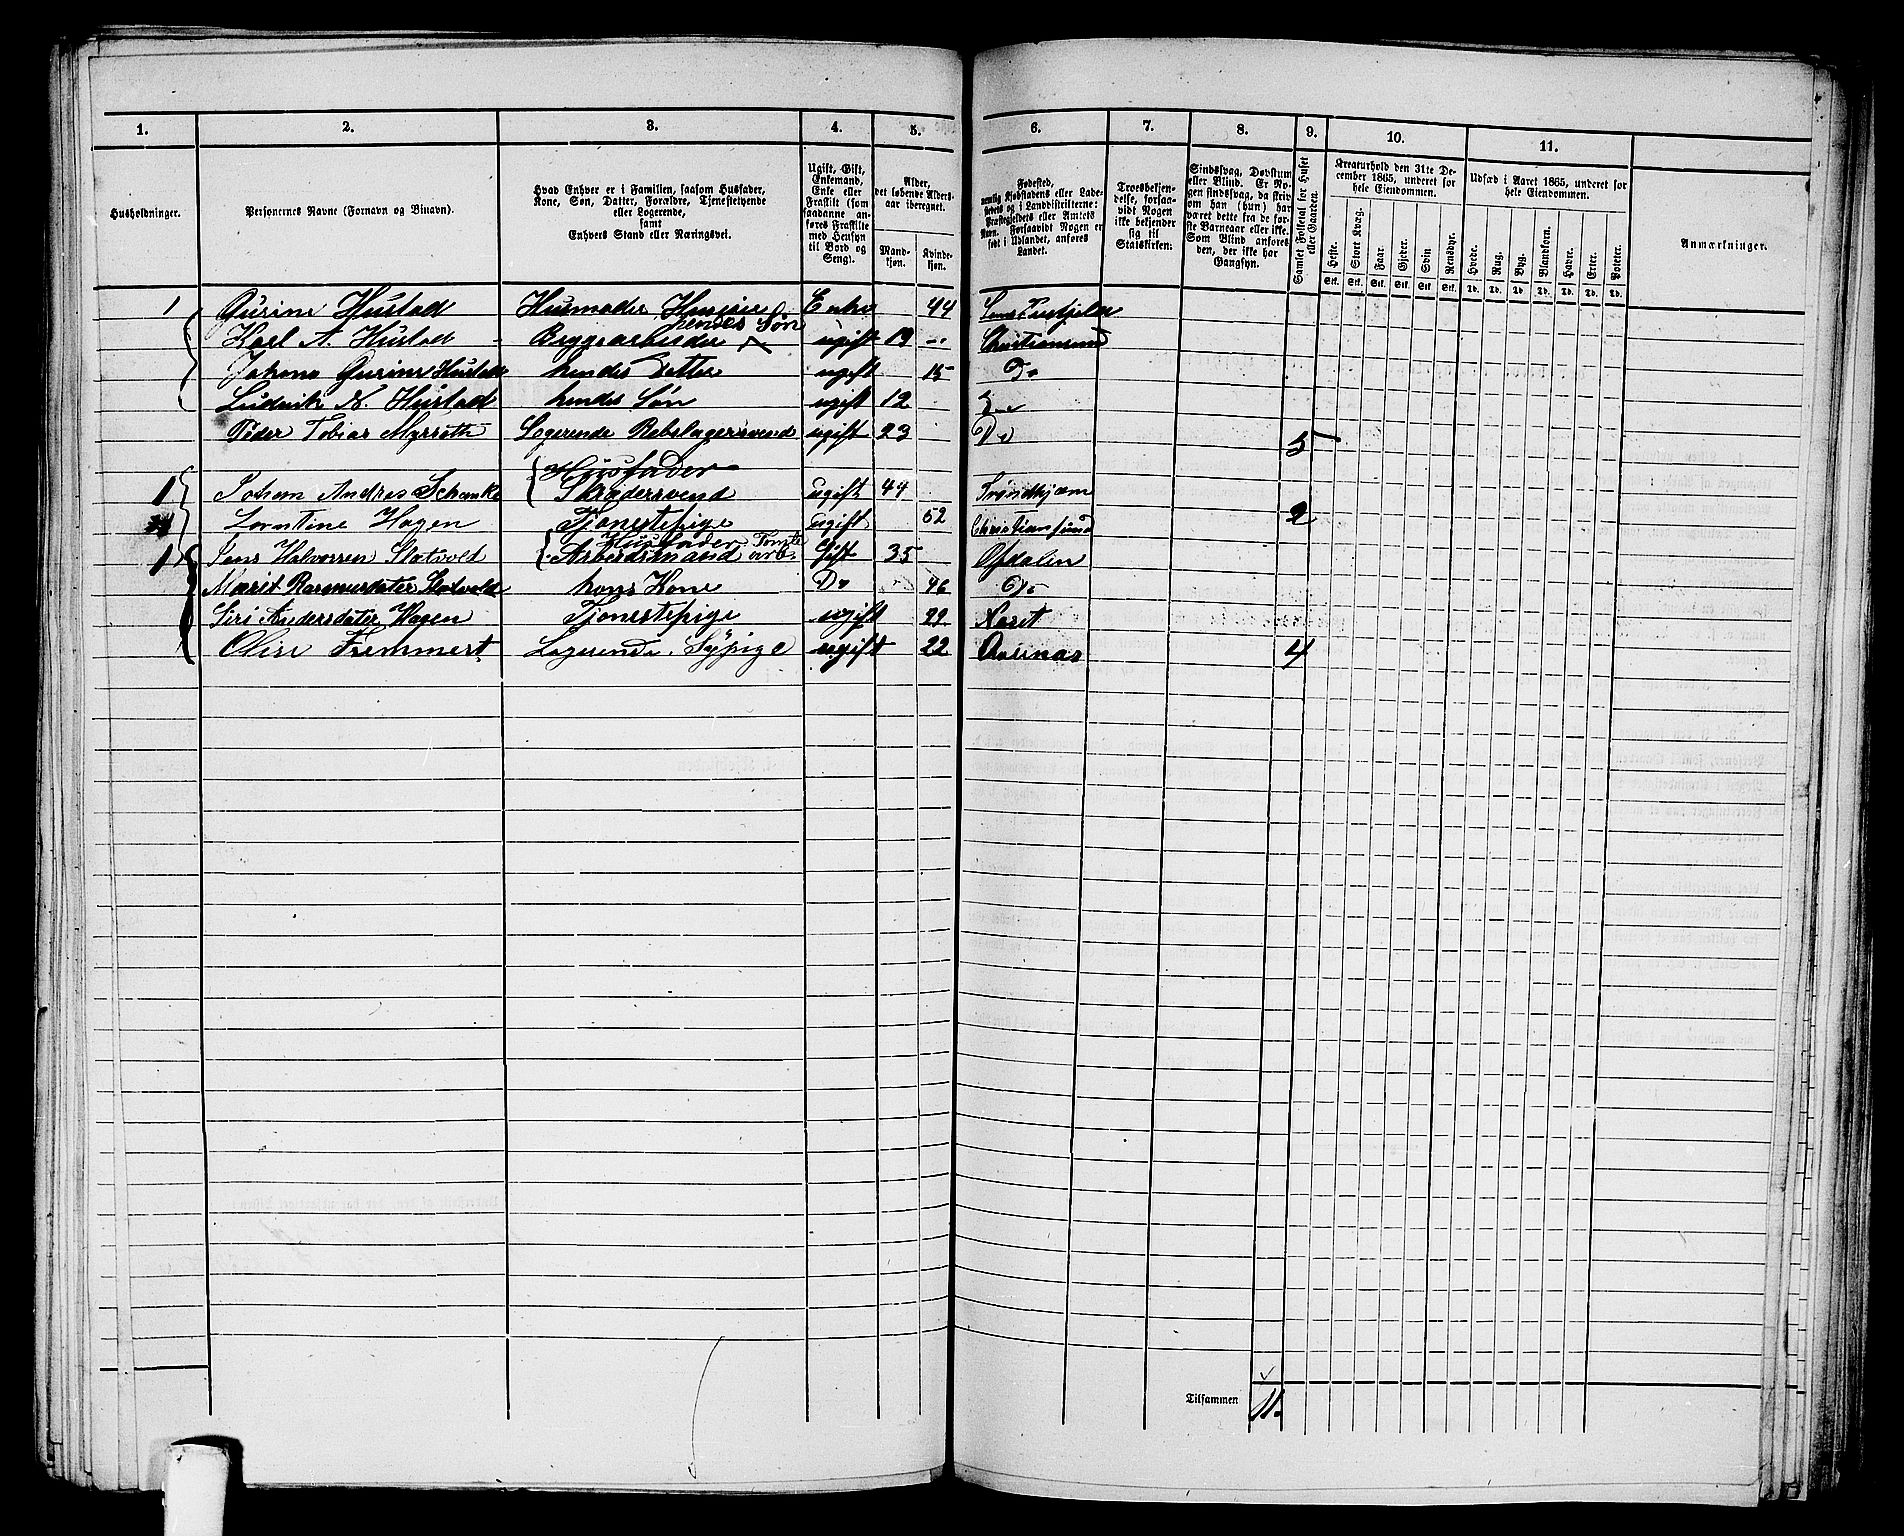 1. 2. 3. 4. 5. 6. 7. 8. 9. 10. 11.
Husholdninger.
Personernes Navne (Fornavn og Binavn).
Hvad Enhver er i Familien, saasom Husfader,
Kone, Søn, Datter, Forældre, Tjenestetyende
eller Logerende,
samt
Enhvers Stand eller Næringsvei.
Ugift, Gift,
Enkemand,
Enke eller
Fraskilt (som
saadanne an-
føres Fraskilte
med Hensyn
til Bord og
Seng).
Alder,
det løbende Alders-
aar iberegnet.
Mand-
kjøn.
Kvinde-
kjøn.
Fødested,
nemlig Kjøbstadens eller Lade-
stedets og i Landdistrikterne:
Præstegjeldets eller Amtets
Navn. Forsaavidt Nogen er
født i Udlandet, anføres
Landet.
Troesbekjen-
delse, forsaa-
vidt Nogen
ikke bekjender
sig til
Statskirken.
Sindssvag, Døvstum
eller Blind. Er No-
gen sindssvag, da skriv
om han (hun) har
været dette fra de før-
ste Barneaar eller ikke.
Som Blind anføres
den, der ikke har
Gangsyn.
Samlet Folketal for Huset
eller Gaarden.
Kreaturhold den 31te De-
cember 1865, underet for
hele Eiendommen.
Heste. Stort Kvæg. Faar. Gjeder. Svin. Rensdyr.
Stk. Stk. Stk. Stk. Stk. Stk.
Udsæd i Aaret 1865, underet for
hele Eiendommen.
Hvede. Rug. Byg. Blandkorn. Havre. Erter. Poteter.
Td. Td. Td. Td. Td. Td. Td.
Anmærkninger.
1 Gurine Hustad Husmoder Enke 44
hendes Søn
Karl A. Hustad Bryggearbeider ugift 19 Christiansund
Johana Gurine Hustad hendes Datter ugift 15 Do
Ludvik N. Hustad hendes Søn ugift 12 Do
Peder Tobias Myrseth Logerende Rebslagersvend ugift 23 Do 5
Husfader
1 Johan Andreas Schanke Skrædersvend ugift 44 Trondhjem
Lorntine Hagen Tjenestepige ugift 52 Christiansund 2
Husfader Tomte
1 Jens Halvorsen Slotvold Arbeidsmand arb. Gift 35 Opdalen
Marit Rasmusdater Slotvold hans Kone Do 46 Do
Siri Andersdater Hagen Tjenestepige ugift 29
Oline Fremmert Logerende Sypige ugift 22 4
Tilsammen 11.